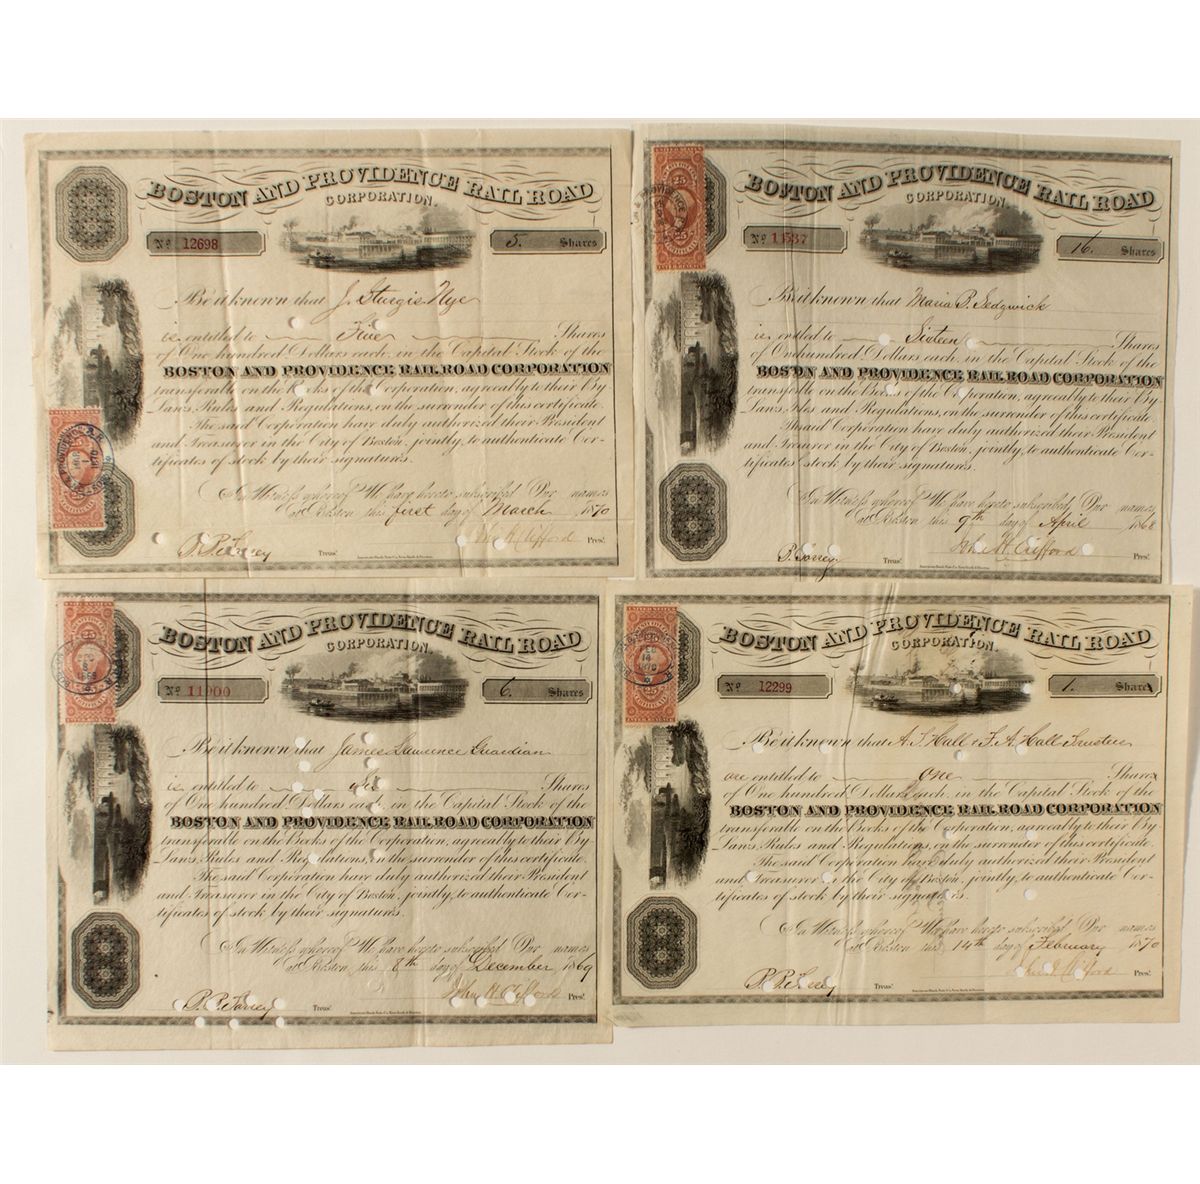 BOSTON AND PROVIDENCE RAIL ROAD
CORPORATION.
No 12698
5. Shares
Be it known that J. Sturgis Nye
is entitled to Five Shares
of One hundred Dollars each, in the Capital Stock of the
BOSTON AND PROVIDENCE RAIL ROAD CORPORATION
transferable on the Books of the Corporation, agreeably to their By
Laws, Rules and Regulations, on the surrender of this certificate.
The said Corporation have duly authorized their President
and Treasurer in the City of Boston, jointly, to authenticate Cer-
tificates of stock by their signatures.
In Witness whereof We have hereto subscribed Our names
at Boston this first day of March 1870
P. P. Torrey Treas! John H. Clifford Pres!
American Bank Note Co. New York & Boston.
BOSTON AND PROVIDENCE RAIL ROAD
CORPORATION.
No
16. Shares
Be it known that Maria B. Sedgwick
is entitled to Sixteen Shares
of One hundred Dollars each, in the Capital Stock of the
BOSTON AND PROVIDENCE RAIL ROAD CORPORATION
transferable on the Books of the Corporation, agreeably to their By
Laws, Rules and Regulations, on the surrender of this certificate.
The said Corporation have duly authorized their President
and Treasurer in the City of Boston, jointly, to authenticate Cer-
tificates of stock by their signatures.
In Witness whereof We have hereto subscribed Our names
at Boston this 9th day of April 1868
P. Torrey Treas! John H. Clifford Pres!
American Bank Note Co. New York & Boston.
BOSTON AND PROVIDENCE RAIL ROAD
CORPORATION.
No 11900
6. Shares
Be it known that James Lawrence Guardian
is entitled to Six Shares
of One hundred Dollars each, in the Capital Stock of the
BOSTON AND PROVIDENCE RAIL ROAD CORPORATION
transferable on the Books of the Corporation, agreeably to their By
Laws, Rules and Regulations, on the surrender of this certificate.
The said Corporation have duly authorized their President
and Treasurer in the City of Boston, jointly, to authenticate Cer-
tificates of stock by their signatures.
In Witness whereof We have hereto subscribed Our names
at Boston this 8th day of December 1869
P. P. Torrey Treas! John H. Clifford Pres!
American Bank Note Co. New York & Boston.
BOSTON AND PROVIDENCE RAIL ROAD
CORPORATION.
No 12299
1. Share
Be it known that A. T. Hall & F. A. Hall Trustees
are entitled to one Share
of One hundred Dollars each, in the Capital Stock of the
BOSTON AND PROVIDENCE RAIL ROAD CORPORATION
transferable on the Books of the Corporation, agreeably to their By
Laws, Rules and Regulations, on the surrender of this certificate.
The said Corporation have duly authorized their President
and Treasurer in the City of Boston, jointly, to authenticate Cer-
tificates of stock by their signatures.
In Witness whereof We have hereto subscribed Our names
at Boston this 14th day of February 1870
P. P. Torrey Treas! John H. Clifford Pres!
American Bank Note Co. New York & Boston.